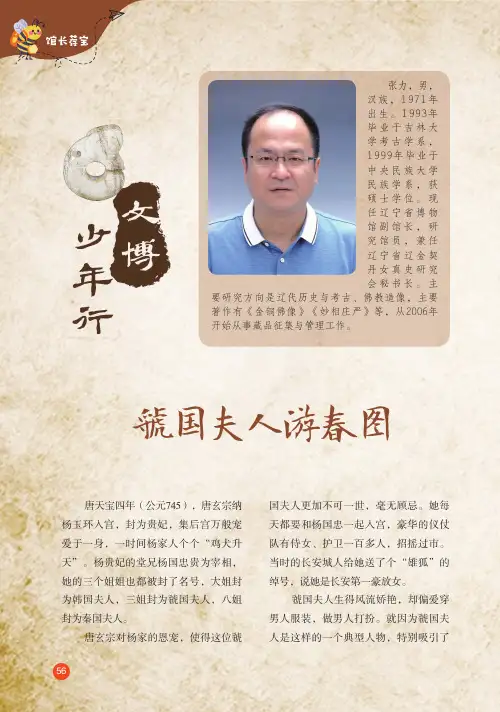 馆长荐宝
文博
少年行
张力,男,
汉族,1971年
出生。1993年
毕业于吉林大
学考古学系,
1999年毕业于
中央民族大学
民族学系,获
硕士学位。现
任辽宁省博物
馆副馆长,研
究馆员,兼任
辽宁省辽金契
丹女真史研究
会秘书长。主
要研究方向是辽代历史与考古、佛教造像,主要
著作有《金铜佛像》《妙相庄严》等,从2006年
开始从事藏品征集与管理工作。
虢国夫人游春图
唐天宝四年(公元745),唐玄宗纳
杨玉环入宫,封为贵妃,集后宫万般宠
爱于一身,一时间杨家人个个“鸡犬升
天”。杨贵妃的堂兄杨国忠贵为宰相,
她的三个姐姐也都被封了名号,大姐封
为韩国夫人,三姐封为虢国夫人,八姐
封为秦国夫人。
唐玄宗对杨家的恩宠,使得这位虢
国夫人更加不可一世,毫无顾忌。她每
天都要和杨国忠一起入宫,豪华的仪仗
队有侍女、护卫一百多人,招摇过市。
当时的长安城人给她送了个“雄狐”的
绰号,说她是长安第一豪放女。
虢国夫人生得风流娇艳,却偏爱穿
男人服装,做男人打扮。就因为虢国夫
人是这样的一个典型人物,特别吸引了
56